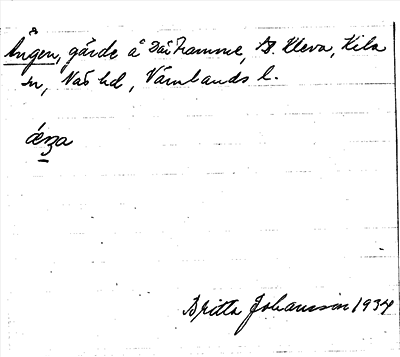 Ången, gärde å Där Framme, St. Kleva, Kila
sn, Näs hd, Värmlands l.
Britta Johansson 1934